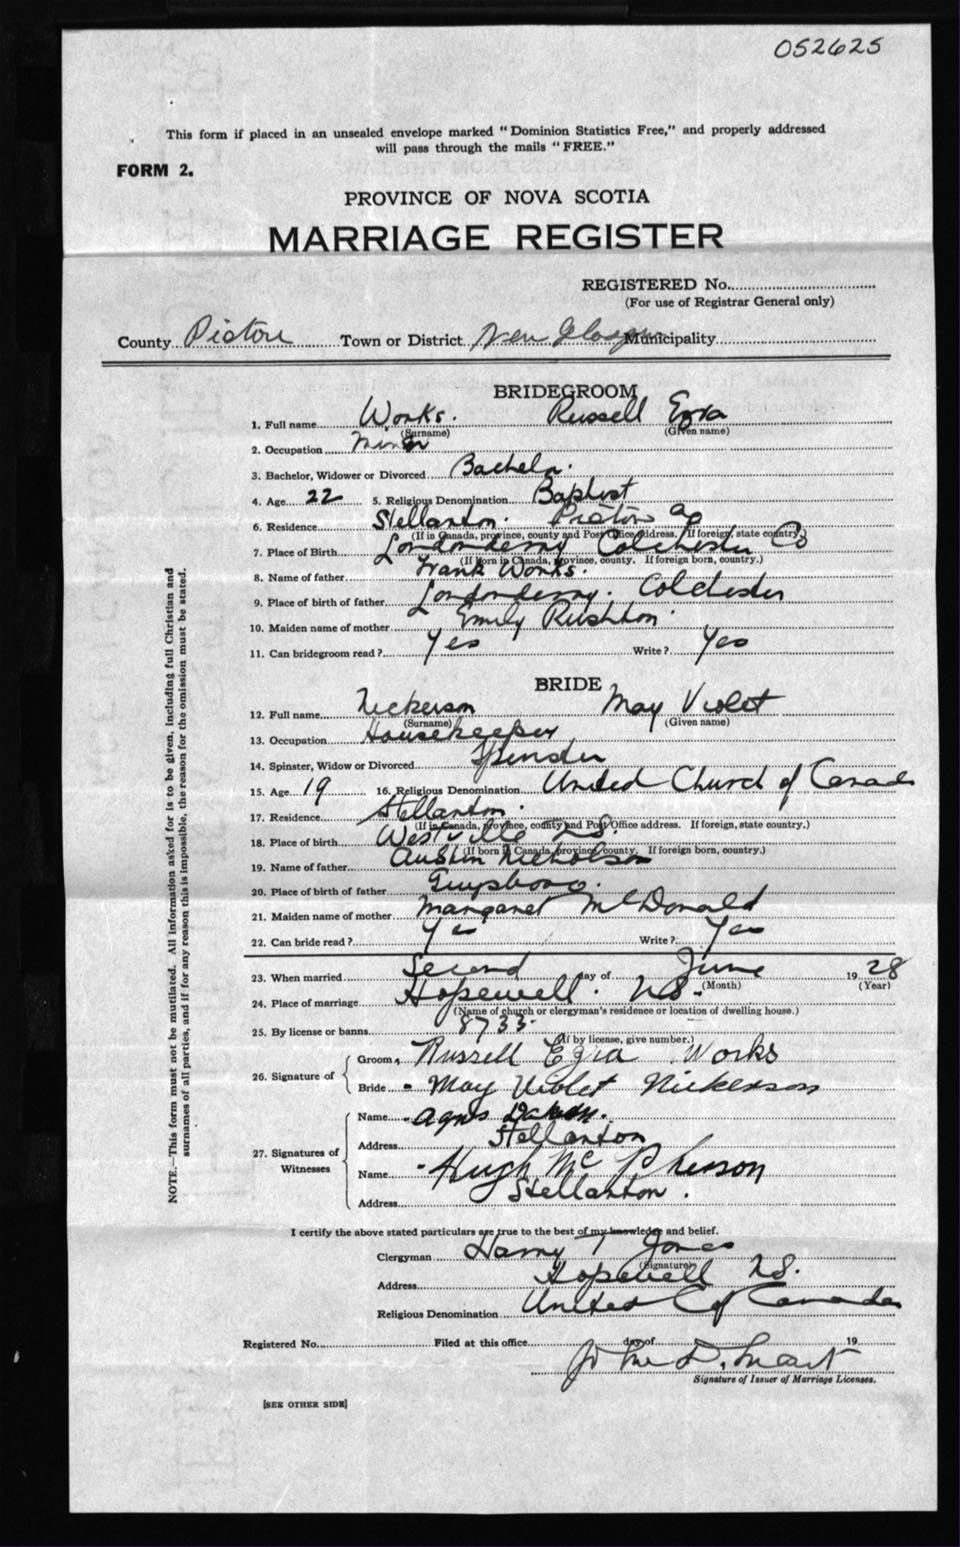 052625
This form if placed in an unsealed envelope marked "Dominion Statistics Free," and properly addressed
will pass through the mails "FREE."
FORM 2.
PROVINCE OF NOVA SCOTIA
MARRIAGE REGISTER
REGISTERED No.
(For use of Registrar General only)
County Pictou Town or District New Glasgow Municipality
BRIDEGROOM
1. Full name Works. Russell Ezra
(Surname) (Given name)
2. Occupation Miner
3. Bachelor, Widower or Divorced Bachelor.
4. Age 22 5. Religious Denomination Baptist
6. Residence Stellarton. Pictou Co
(If in Canada, province, county and Post Office address. If foreign, state country.)
7. Place of Birth Londonderry Colchester Co
(If born in Canada, province, county. If foreign born, country.)
8. Name of father Frank Works.
9. Place of birth of father Londonderry. Colchester
10. Maiden name of mother Emily Rushton.
11. Can bridegroom read? Yes Write? Yes
BRIDE
12. Full name Nickerson May Violet
(Surname) (Given name)
13. Occupation Housekeeper
14. Spinster, Widow or Divorced Spinster
15. Age 19 16. Religious Denomination United Church of Canada
17. Residence Stellarton.
(If in Canada, province, county and Post Office address. If foreign, state country.)
18. Place of birth Westville NS
(If born in Canada, province, county. If foreign born, country.)
19. Name of father Austin Nicholson
20. Place of birth of father Guysboro.
21. Maiden name of mother Margaret McDonald
22. Can bride read? Yes Write? Yes
23. When married Second day of June 1928
(Month) (Year)
24. Place of marriage Hopewell. NS.
(Name of church or clergyman's residence or location of dwelling house.)
25. By license or banns 8733.
(If by license, give number.)
26. Signature of
Groom Russell Ezra Works
Bride May Violet Nickerson
27. Signatures of Witnesses
Name Agnes
Address Stellarton
Name Hugh McPherson
Address Stellarton.
I certify the above stated particulars are true to the best of my knowledge and belief.
Clergyman Harry T Jones
(Signature)
Address Hopewell NS.
Religious Denomination United C of Canada
Registered No. Filed at this office day of 19
John D.
Signature of Issuer of Marriage Licenses.
[SEE OTHER SIDE]
NOTE.—This form must not be mutilated. All information asked for is to be given, including full Christian and
surnames of all parties, and if for any reason this is impossible, the reason for the omission must be stated.